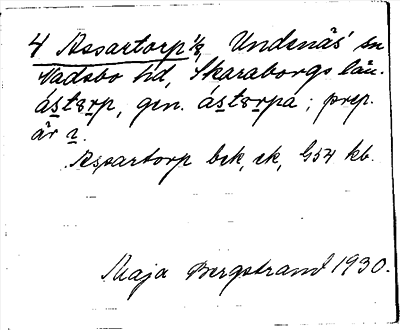 4 Assartorp 1/8 Undenäs sn
Vadsbo hd, Skaraborgs län.
ástərp, gen. ástərpa; prep.
är i.
Assartorp bek, ek, G54 kb.
Maja Bergstrand 1930.